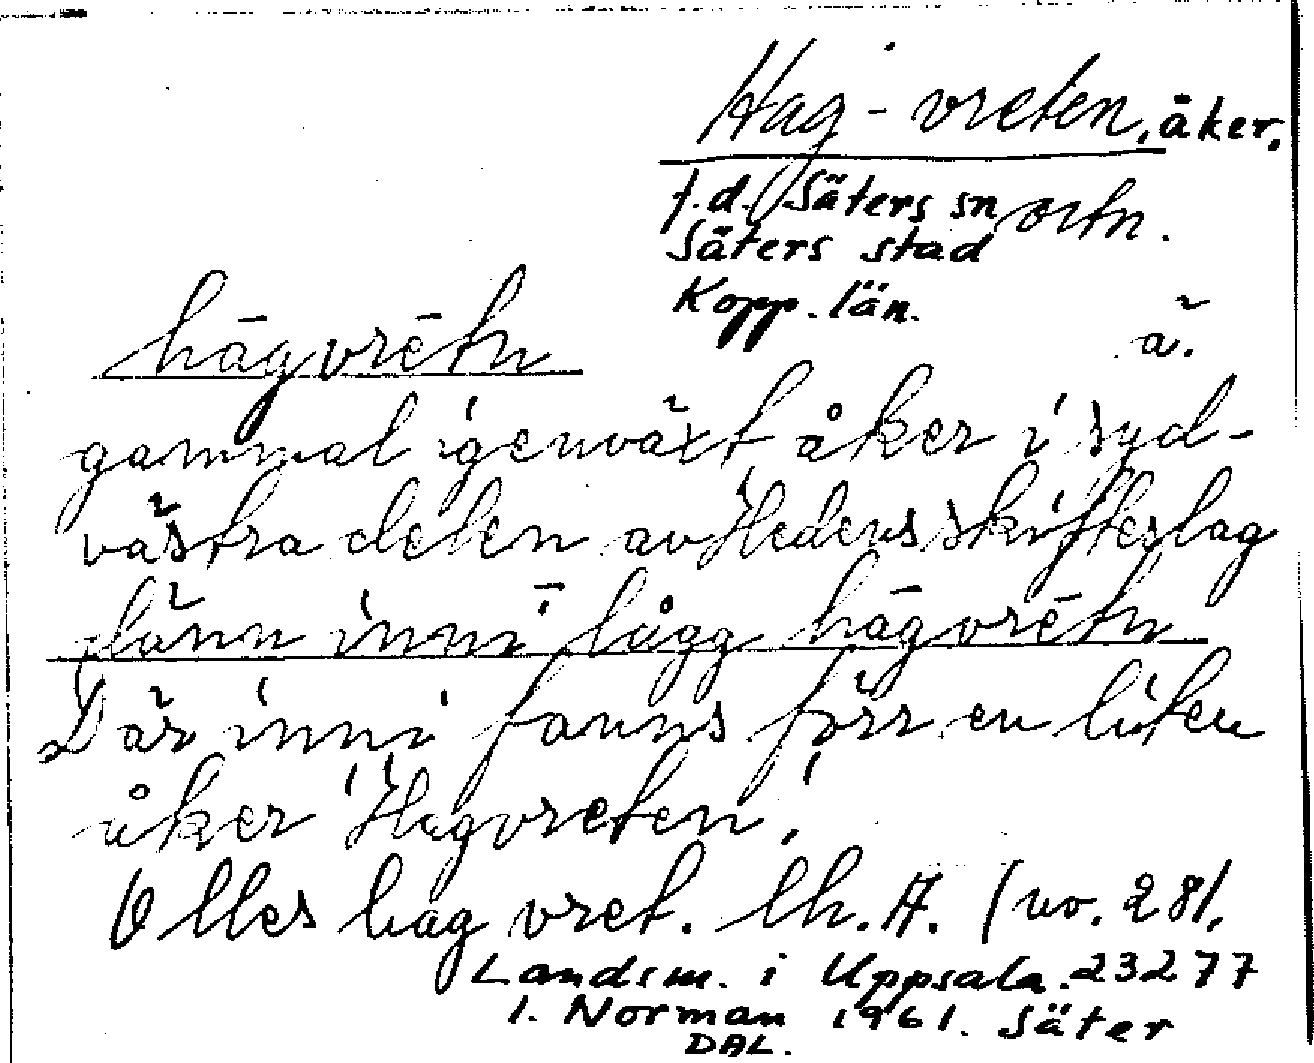 Hag-vreten, åker,
f.d. Säters sn ortn.
Säters stad
Kopp. län.
hāgvrētn
ä.
gammal igenväxt åker i syd-
västra delen av Hedens skifteslag
dänn inni lågg hāgvrētn
Där inni fanns förr en liten
åker 'Hagvreten'.
Olles hag vret. lh. A. (no. 28).
Landsm. i Uppsala. 23277
I. Norman 1961. Säter
DAL.